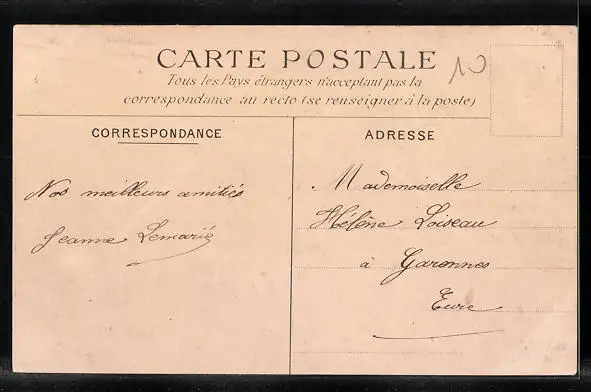 CARTE POSTALE
10
Tous les Pays étrangers n'acceptant pas la
correspondance au recto (se renseigner à la poste)
CORRESPONDANCE
Nos meilleurs amitiés
Jeanne Lemarié
ADRESSE
Mademoiselle
Hélène Loiseau
à Garennes
Eure